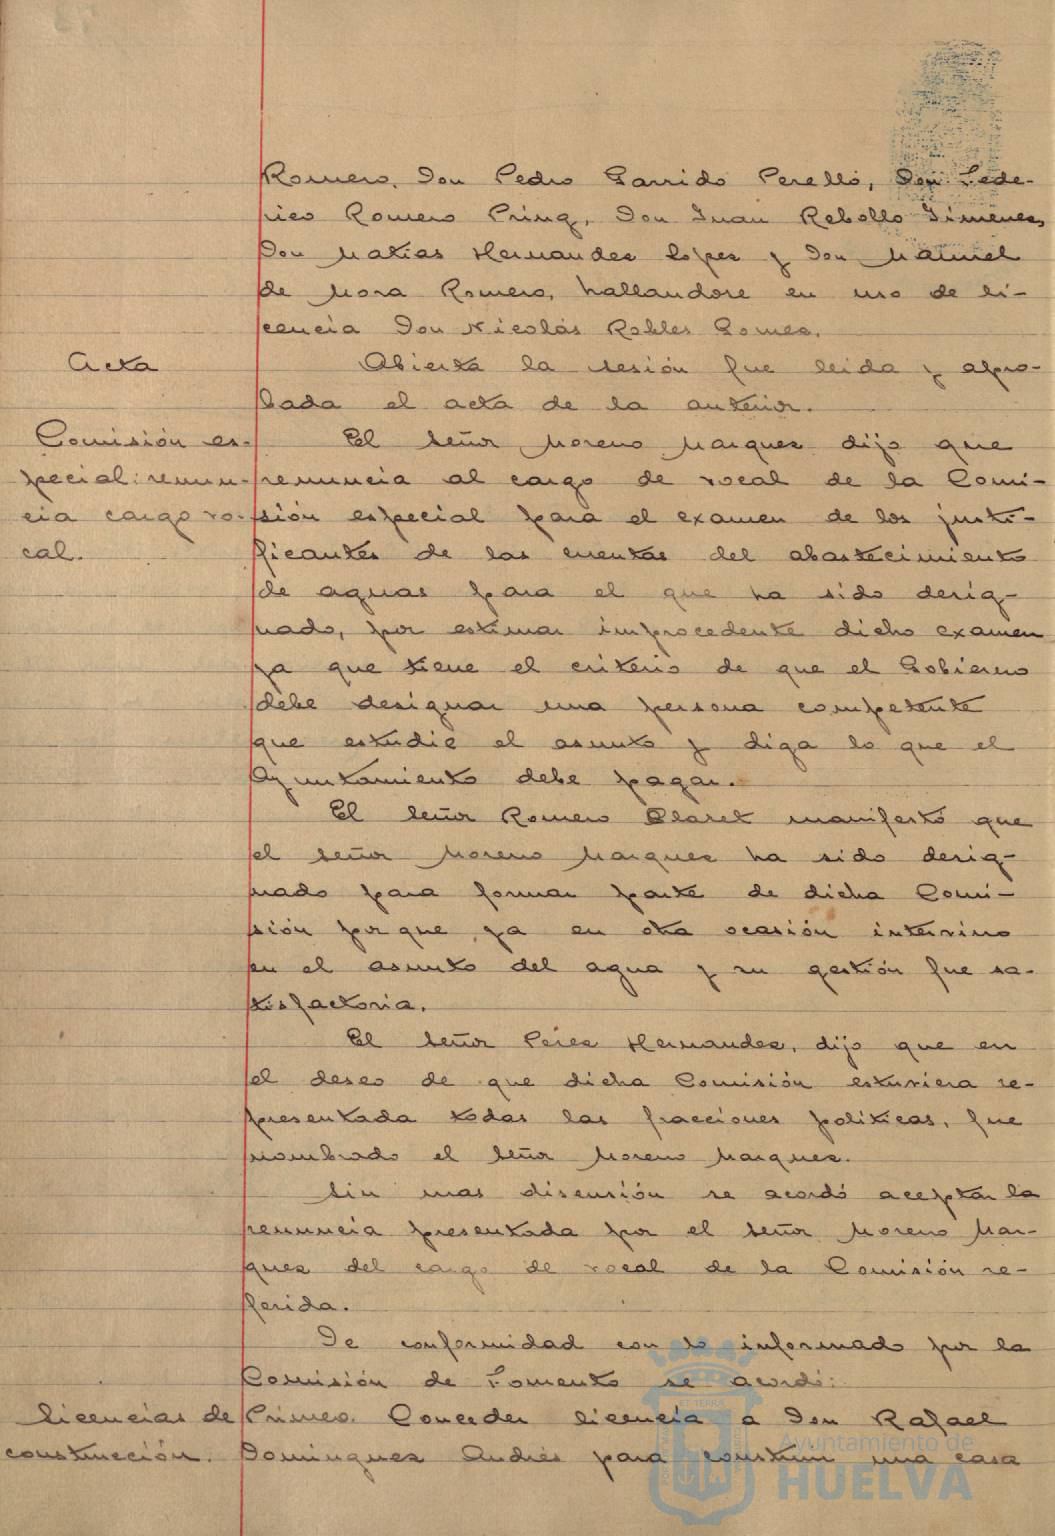 Romero, Don Pedro Garrido Perelló, Don Fede-
rico Romero Pring, Don Juan Rebollo Jimenez,
Don Matias Hernandez Lopez y Don Manuel
de Mora Romero, hallandose en uso de li-
cencia Don Nicolás Robles Gomez.
Acta
Abierta la sesión fue leida y apro-
bada el acta de la anterior.
Comisión es-
pecial: renun-
cia cargo vo-
cal.
El Señor Moreno Marquez dijo que
renuncia al cargo de vocal de la Comi-
sión especial para el examen de los justi-
ficantes de las cuentas del abastecimiento
de aguas para el que ha sido desig-
nado, por estimar improcedente dicho examen
ya que tiene el criterio de que el Gobierno
debe designar una persona competente
que estudie el asunto y diga lo que el
Ayuntamiento debe pagar.
El Señor Romero Claret manifestó que
el señor Moreno Marquez ha sido desig-
nado para formar parte de dicha Comi-
sión porque ya en otra ocasión intervino
en el asunto del agua y su gestión fue sa-
tisfactoria.
El Señor Perez Hernandez, dijo que en
el deseo de que dicha Comisión estuviera re-
presentada todas las fracciones politicas, fue
nombrado el Señor Moreno Marquez.
Sin mas discusión se acordó aceptar la
renuncia presentada por el Señor Moreno Mar-
quez del cargo de vocal de la Comisión re-
ferida.
De conformidad con lo informado por la
Comisión de Fomento se acordó:
Licencias de
construcción.
Primero. Conceder licencia a Don Rafael
Dominguez Andrés para construir una casa
Ayuntamiento de
HUELVA